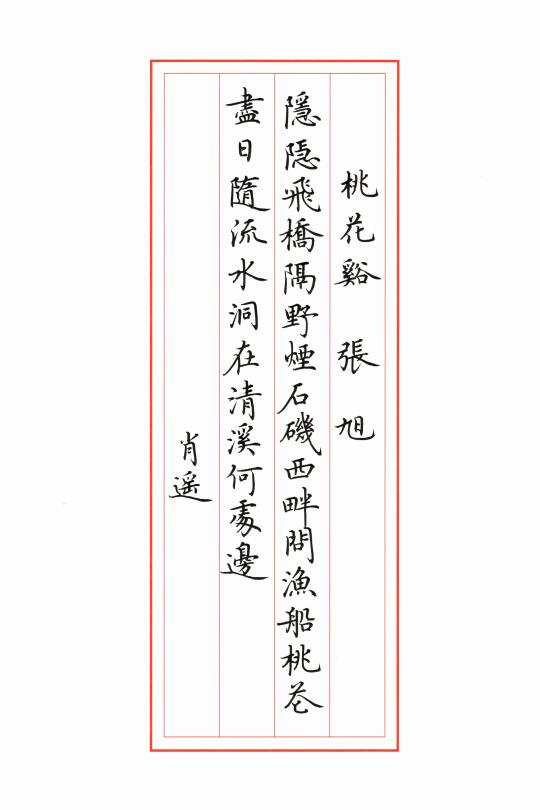 桃花谿 張旭
隱隱飛橋隔野煙石磯西畔問漁船桃花
盡日隨流水洞在清溪何處邊
肖遥